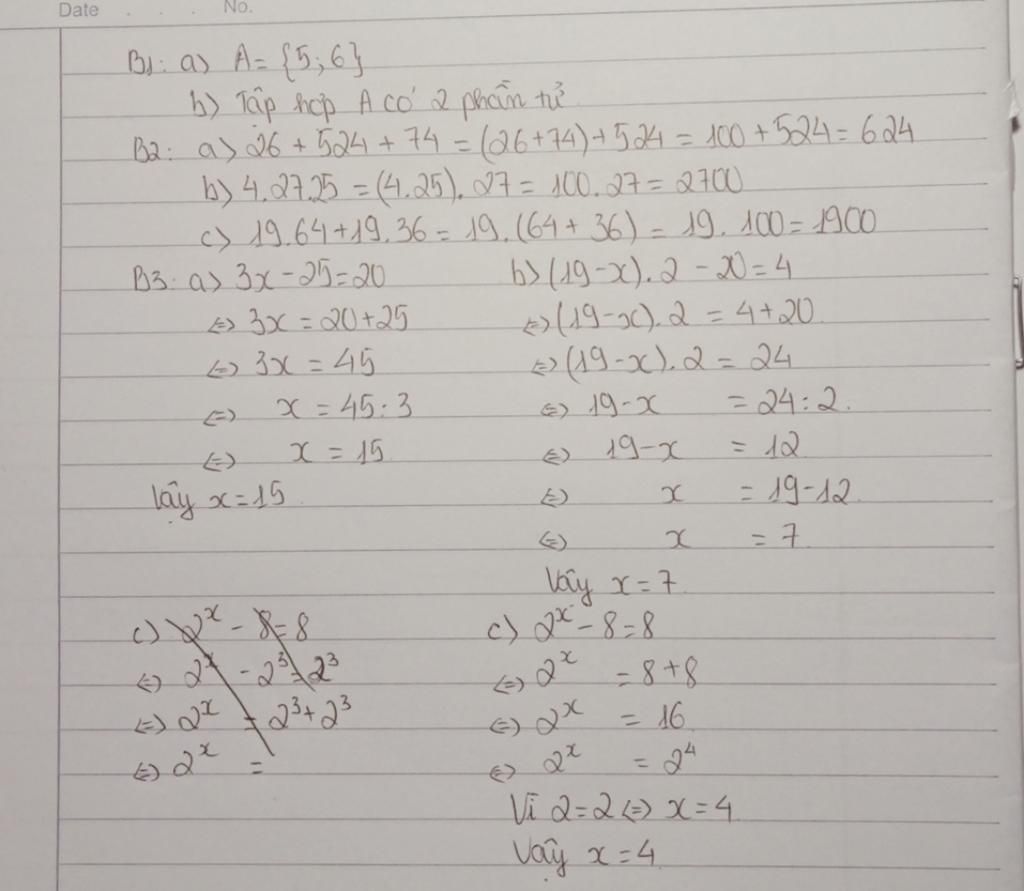 Date . . . No.
B1: a) A = {5; 6}
b) Tập hợp A có 2 phần tử
B2: a) 26 + 524 + 74 = (26+74) + 524 = 100 + 524 = 624
b) 4.27.25 = (4.25). 27 = 100.27 = 2700
c) 19.64 + 19.36 = 19.(64 + 36) = 19. 100 = 1900
B3: a) 3x - 25 = 20
⇔ 3x = 20+25
⇔ 3x = 45
⇔ x = 45:3
⇔ x = 15
Vậy x = 15
b) (19-x). 2 - 20 = 4
⇔ (19-x). 2 = 4+20
⇔ (19-x). 2 = 24
⇔ 19-x = 24:2.
⇔ 19-x = 12
⇔ x = 19-12
⇔ x = 7
Vậy x = 7
c) 2ˣ - 8 = 8
⇔ 2ˣ - 2³ = 2³
⇔ 2ˣ = 2³ + 2³
⇔ 2ˣ =
c) 2ˣ - 8 = 8
⇔ 2ˣ = 8+8
⇔ 2ˣ = 16
⇔ 2ˣ = 2⁴
Vì 2 = 2 ⇔ x = 4
Vậy x = 4